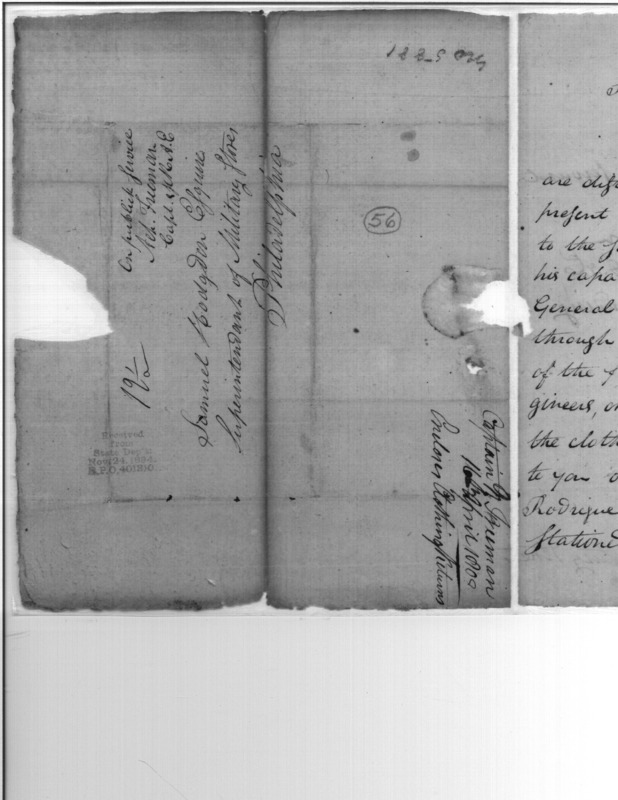 On publick Service
Neh. Freeman
Capt.
12½
Samuel Hodgdon Esquire
Superintendant of Military Stores
Philadelphia
Received
from
State Dep't
Nov. 24, 1894
R.P.O. 401210
56
Captain N. Freeman
16 April 1800
Encloses Clothing Returns
are
present
to the
his capa
General
through
of the
gineers, or
the cloth
to you
Rodrigue
Stationed